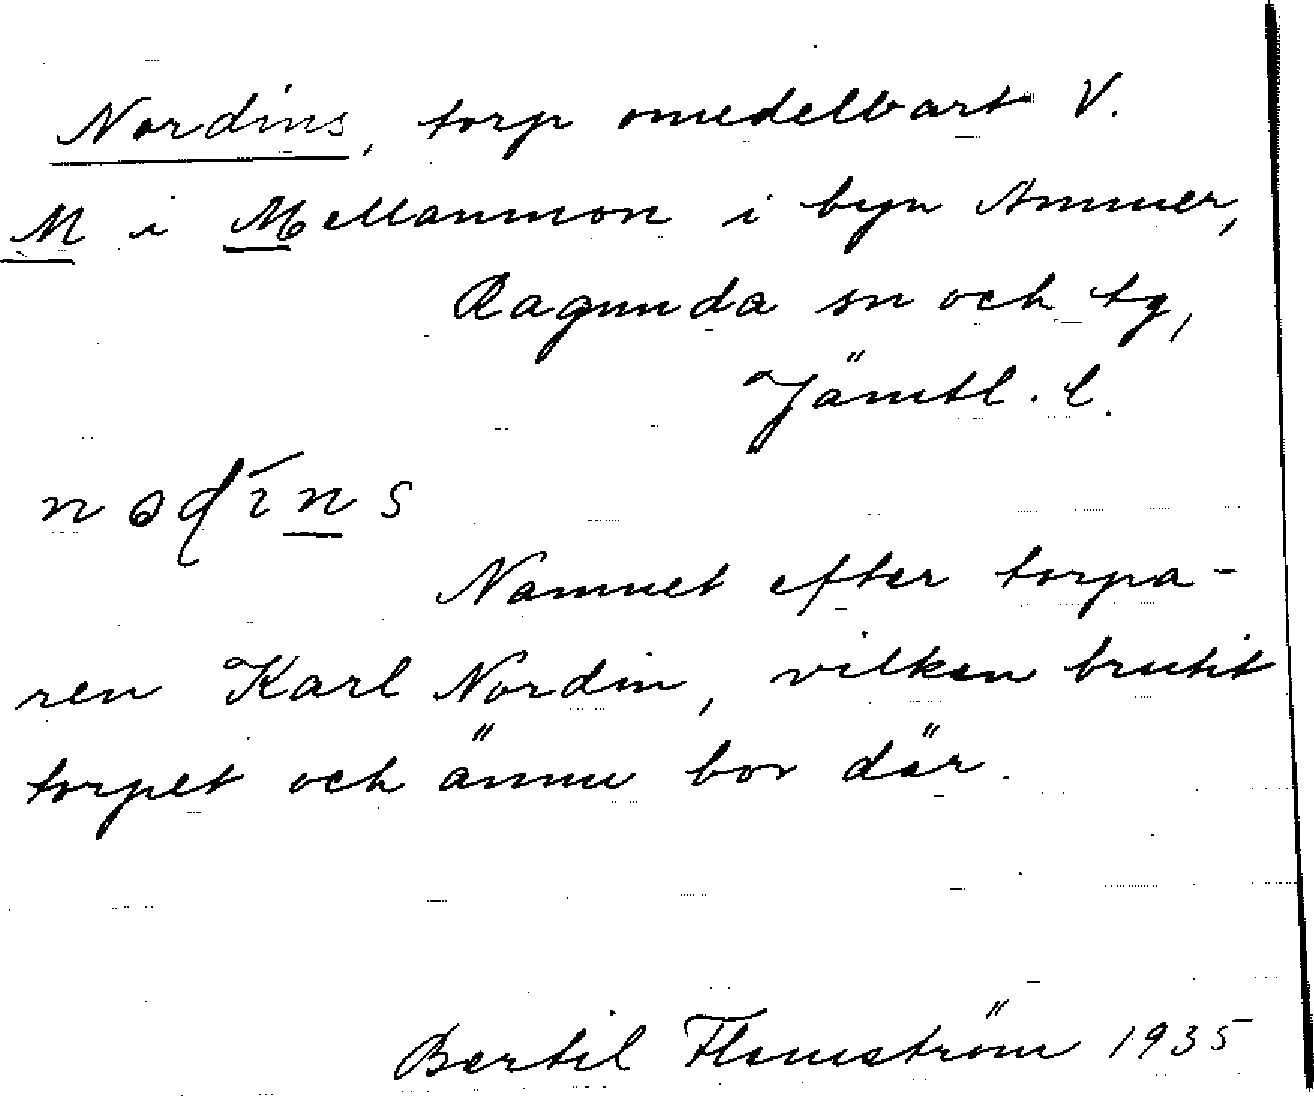 Nordins, torp omedelbart V.
M i Mellanmon i byn Ammer,
Ragunda sn och tg,
Jämtl. l.
Namnet efter torpa-
ren Karl Nordin, vilken brutit
torpet och ännu bor där.
Bertil Flemström 1935